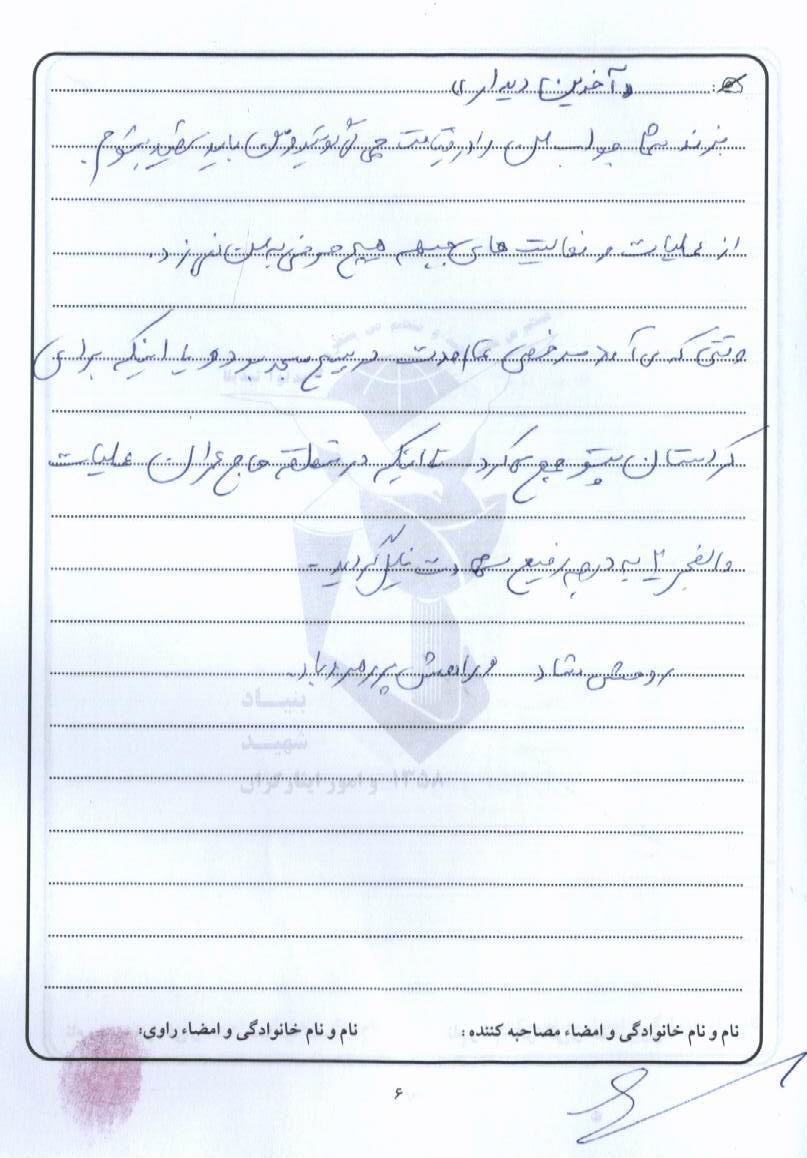 «آخرین دیدار»
بزند شما جواب من را در قیامت چی می گوئید و من باید شهید بشوم.
از عملیات و فعالیت های جبهه هیچ حرفی به من نمی زد.
وقتی که می آمد مرخصی تمام مدت در بسیج مسجد بود و یا اینکه برای
کردستان پتو جمع می کرد. تا اینکه در منطقه حاج عمران عملیات
والفجر ۲ به درجه رفیع شهادت نایل گردید.
روحش شاد و راهش پر رهرو باد.
بنیاد
شهید
و امور ایثارگران ۱۳۵۸
نام و نام خانوادگی و امضاء مصاحبه کننده : نام و نام خانوادگی و امضاء راوی:
۶